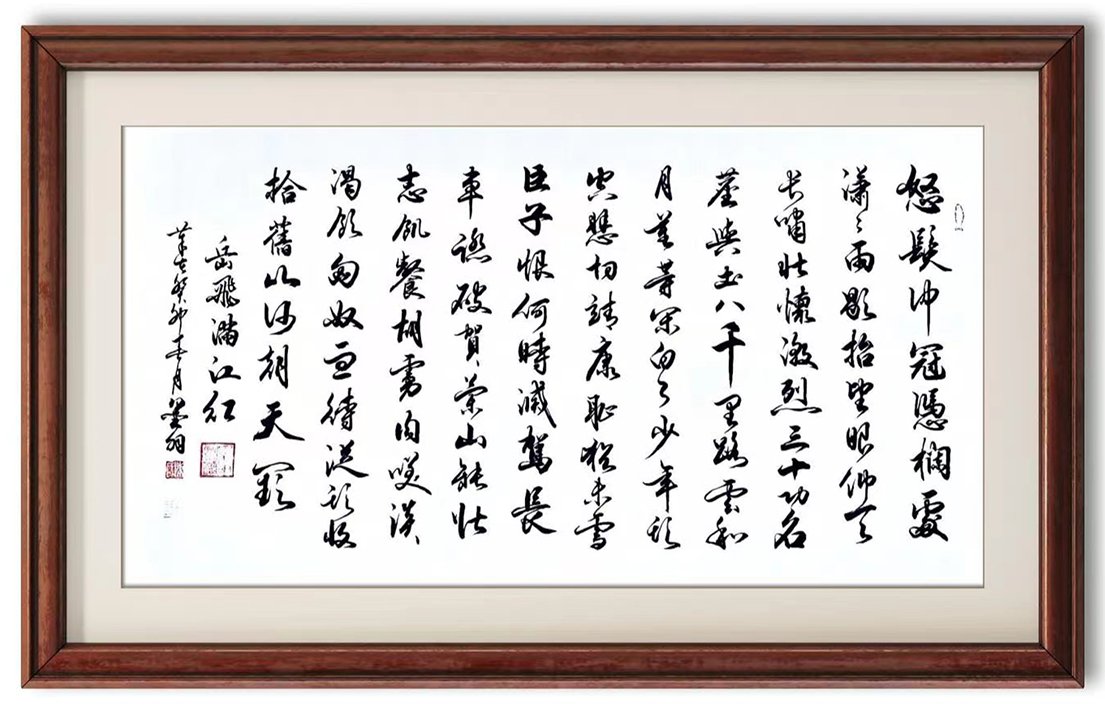 怒髮冲冠憑欄處
瀟々雨歇抬望眼仰天
长嘯壯懷激烈三十功名
塵與土八千里路雲和
月莫等閑白了少年头
空悲切靖康恥猶未雪
臣子恨何時滅駕長
車踏破賀蘭山缺壯
志飢餐胡虜肉笑談
渴飲匈奴血待從头收
拾舊山河朝天闕
岳飛滿江紅
癸卯春月墨